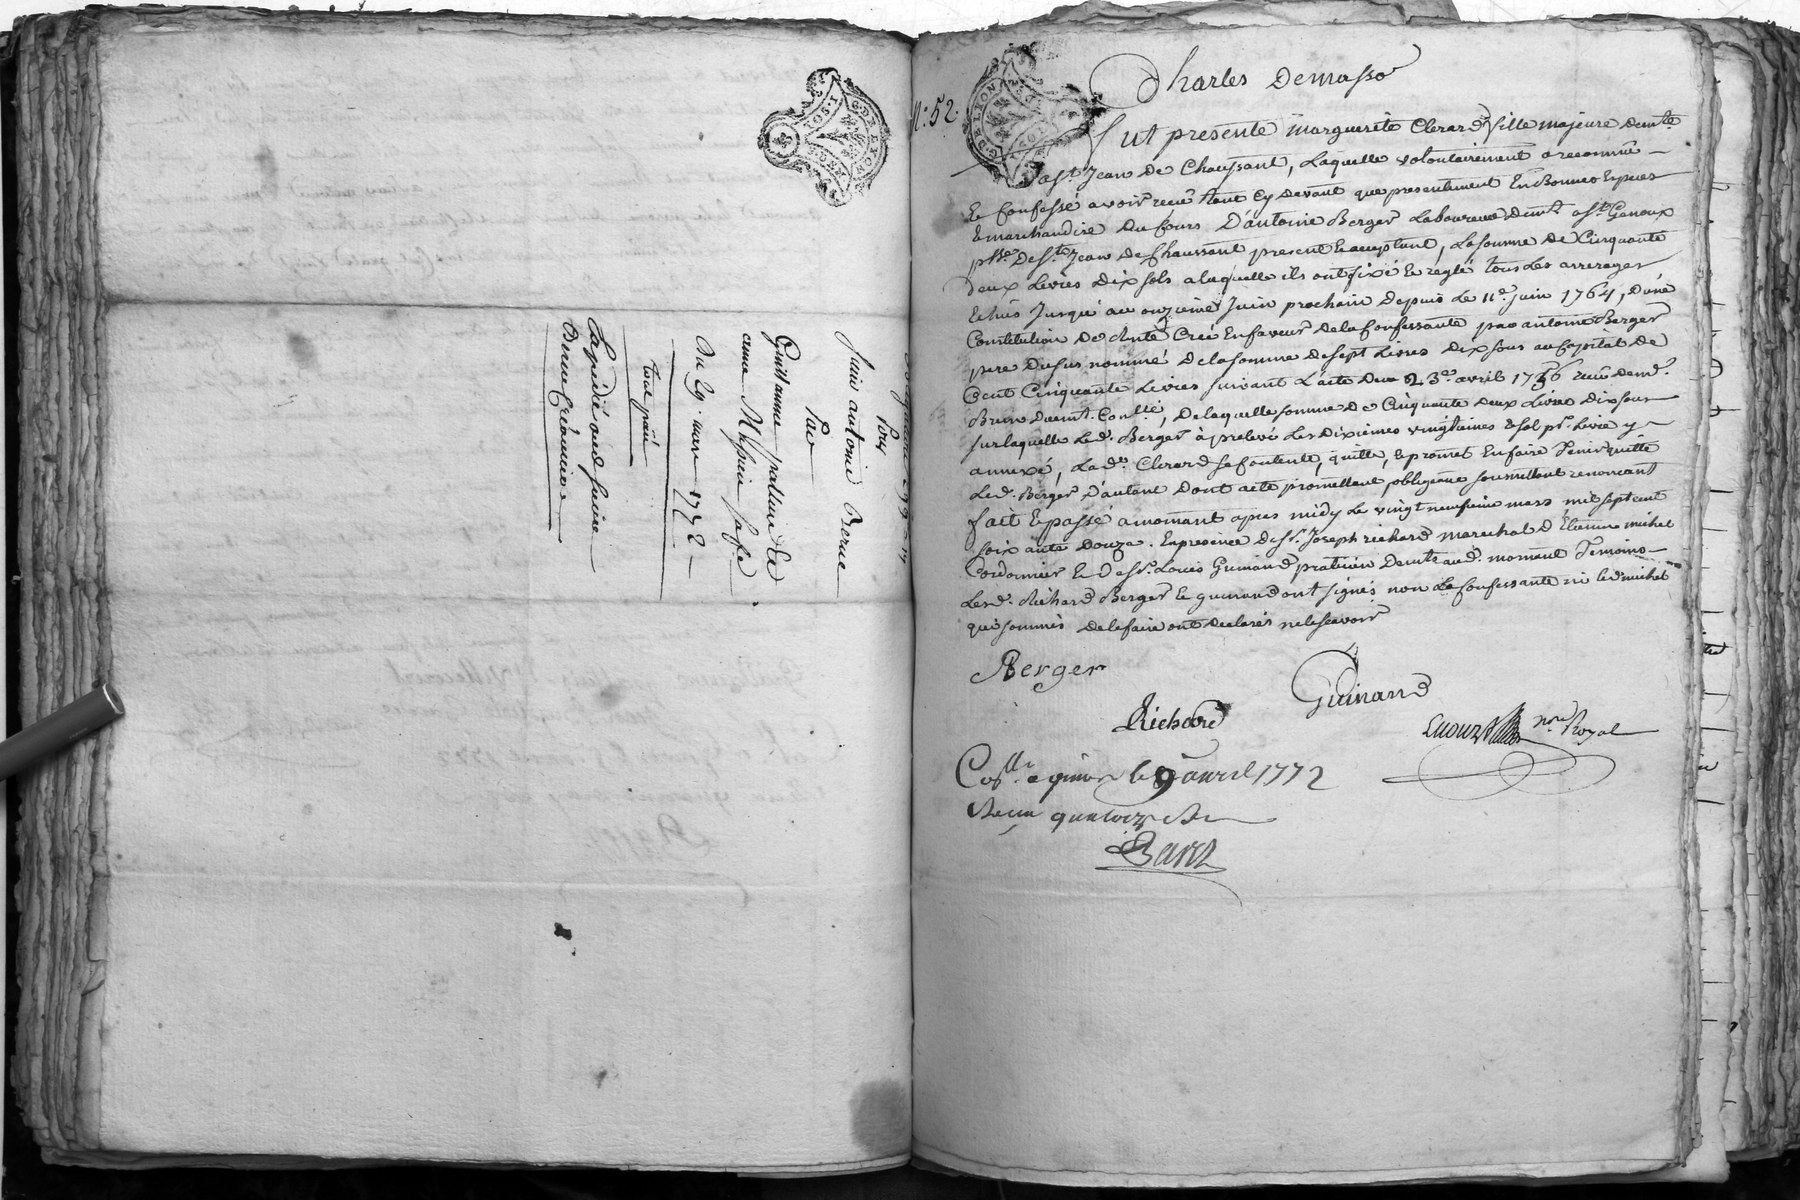 pour
Sieur antoine
Par
Guillaume
Du 29. mars 1772
N.° 52.
Charles Demasso
fut presente marguerite Clerard fille majeure demte
a St. Jean de Chaussant, Laquelle volontairement a reconnu
Et Confessé avoir reçu tant cy devant que presentement En Bonnes Especes
& marchandise du Cours D'antoine Berger Laboureur demt. a St. Genoux
psse. De St. Jean de Chaussant present & acceptant, La somme de Cinquante
deux Livres dix sols a laquelle ils ont fixé & reglé tous Les arrerages
Echus Jusqu'au onzieme Juin prochain depuis Le 11e. juin 1764, d'une
Constitution de rente Creé En faveur de la Confessante par antoine Berger
pere du sus nommé de la somme de sept Livres dix sous au Capital de
Cent Cinquante Livres suivant L'acte du 23e. avril 1736 reçu de md.
De laquelle somme de Cinquante deux Livres dix sous
sur laquelle Led. Berger à prelevé Les dixiemes vingtiemes & sol pr. Livre y
annexé, La de. Clerard se Contente, quitte, & promet En faire Tenir quitte
Led. Berger D'autant Dont acte promettant obligeant soumettant renonçant
fait & passé a mornant apres midy Le vingt neufieme mars mil sept cent
soixante Douze. En presence de Sr. Joseph richard marechal d'Etienne michel
Cordonnier & de Sr. Louis Guinand praticien demts. aud. mornant Temoins
Lesd. Richard Berger & guinand ont signés non La Confessante ni led. michel
qui sommés de le faire ont declarés ne le sçavoir
Berger
Guinand
Richard
nore. Royal
le 9 avril 1772
Recu quatorze